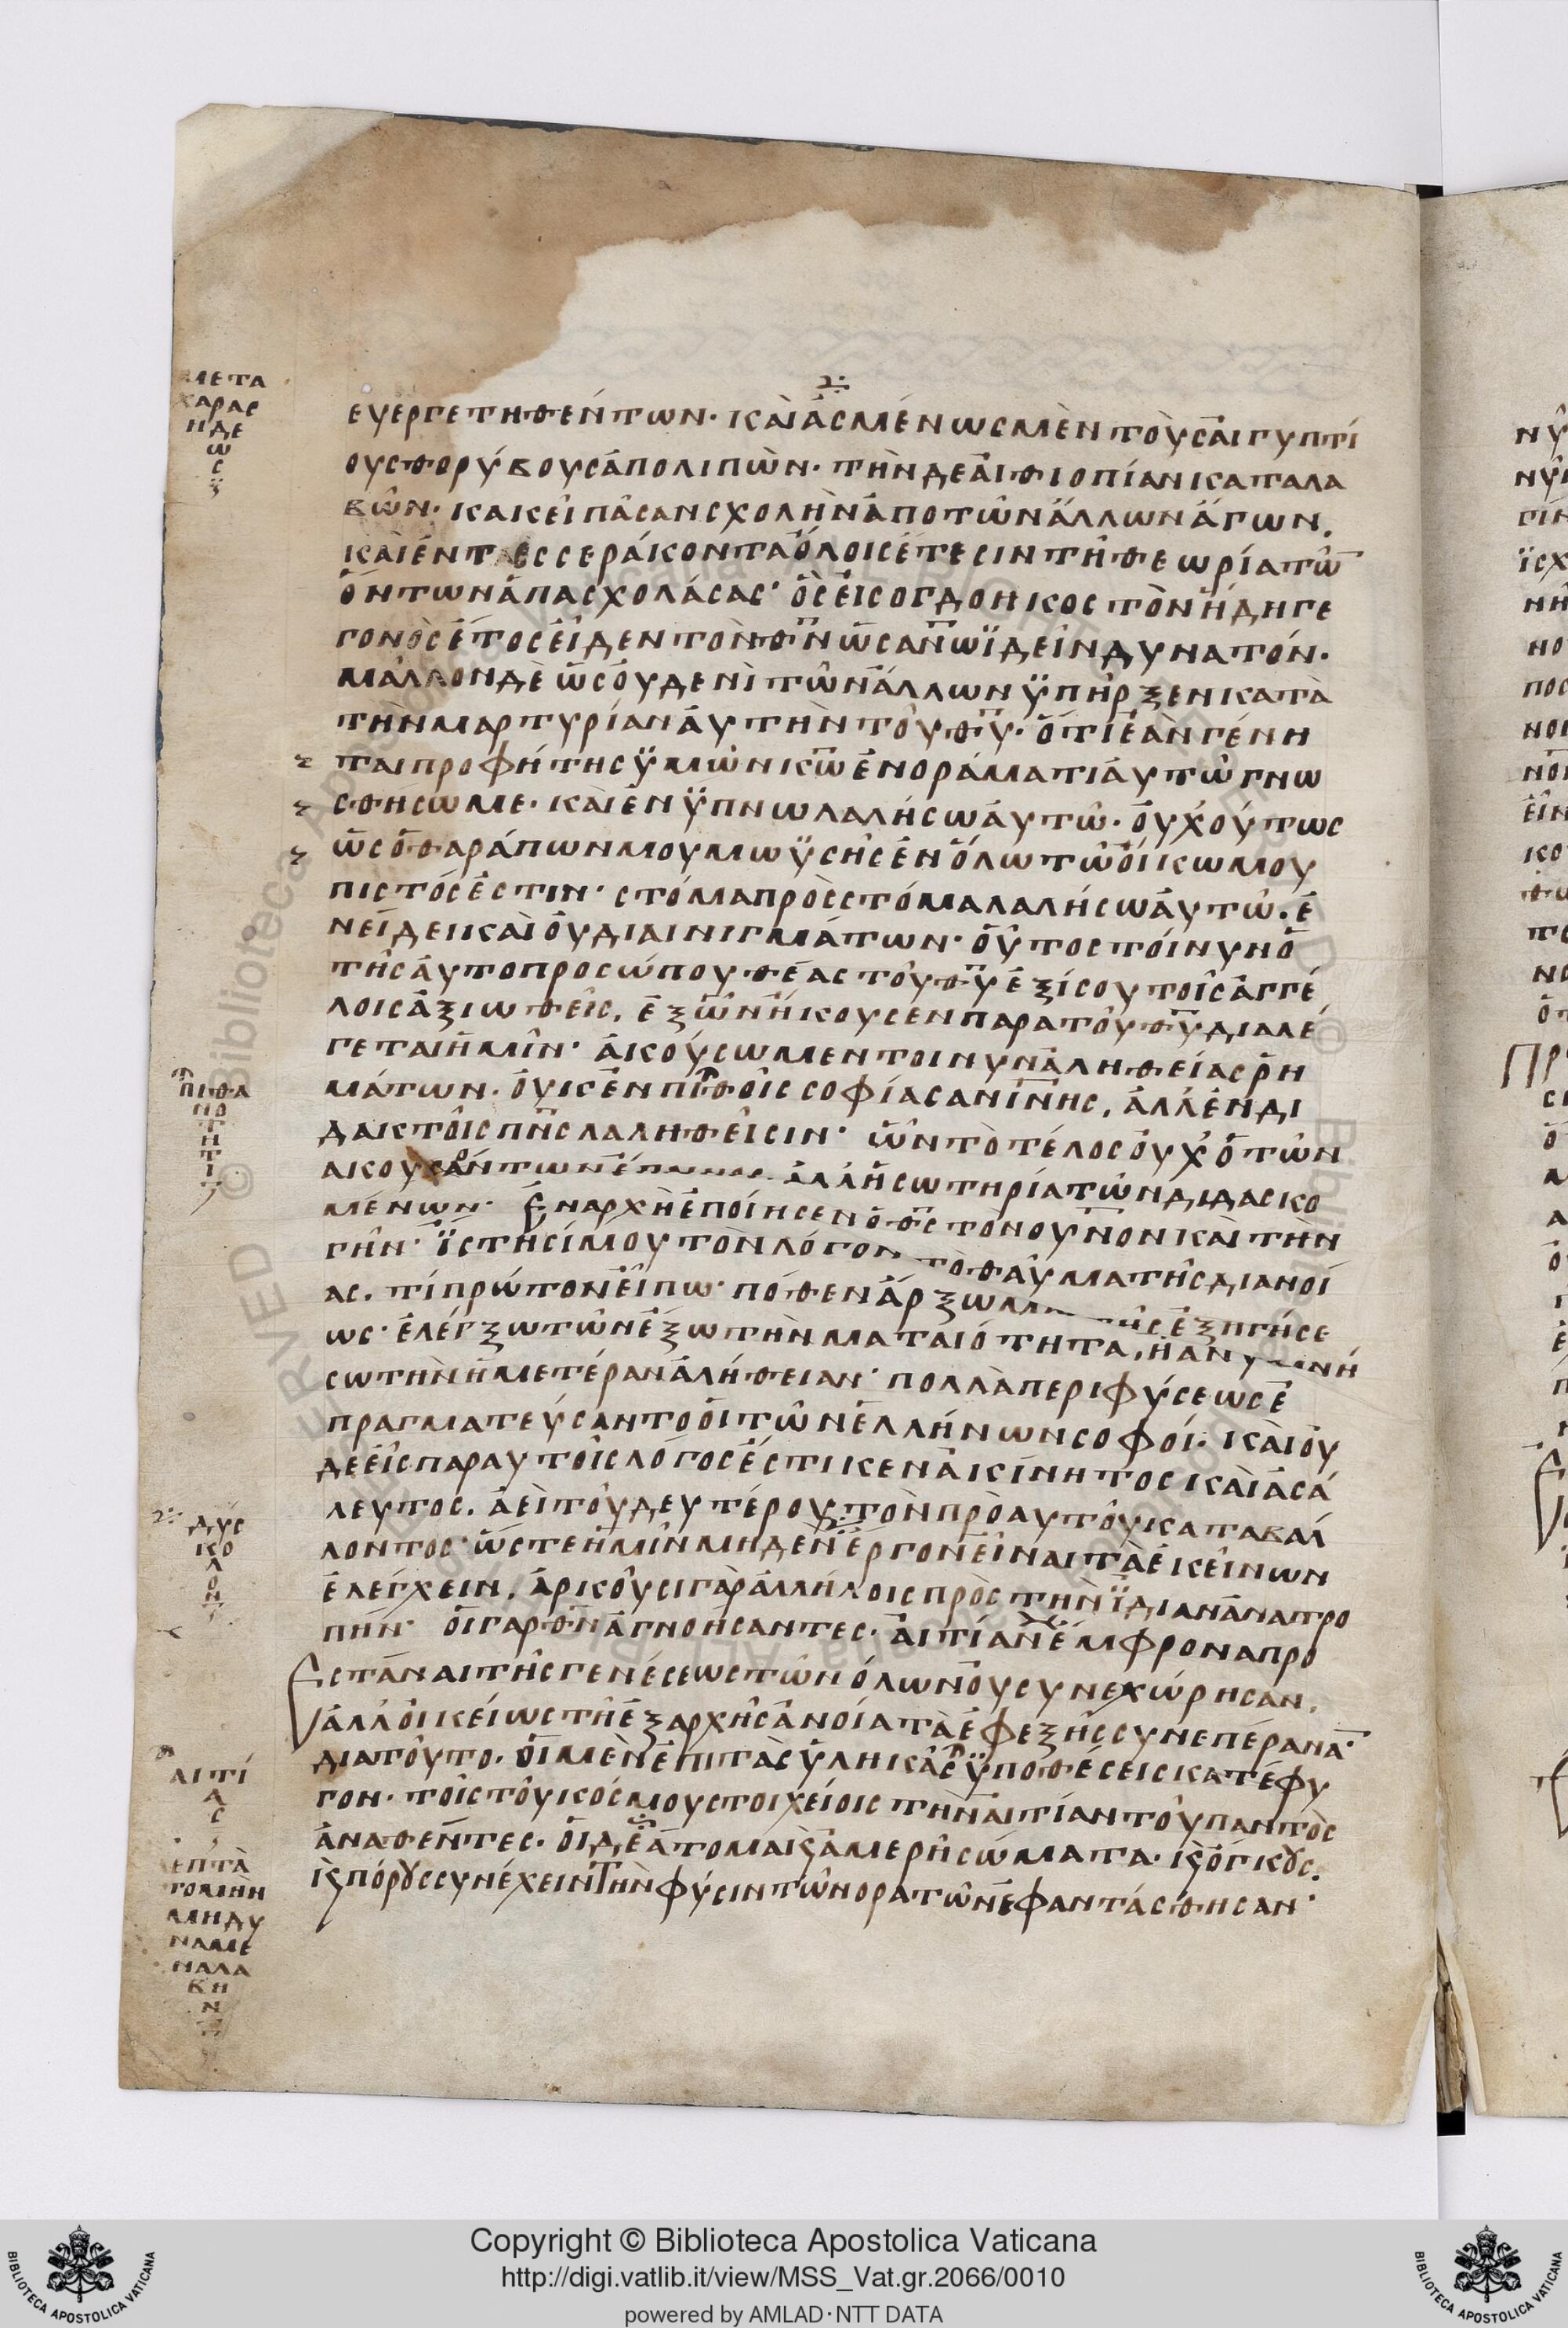 ΜΕΤΑ
ΧΑΡΑΣ
ΗΔΕ
Ω
Σ
ΕΥΕΡΓΕΤΗΘΕΝΤΩΝ· ΚΑΙ ΑΣΜΕΝΩΣ ΜΕΝ ΤΟΥΣ ΑΙΓΥΠΤΙ
ΟΥΣ ΘΟΡΥΒΟΥΣ ΑΠΟΛΙΠΩΝ· ΤΗΝ ΔΕ ΑΙΘΙΟΠΙΑΝ ΚΑΤΑΛΑ
ΒΩΝ· ΚΑΚΕΙ ΠΑΣΑΝ ΣΧΟΛΗΝ ΑΠΟ ΤΩΝ ΑΛΛΩΝ ΑΓΩΝ.
ΚΑΙ ΕΝ ΤΕΣΣΕΡΑΚΟΝΤΑ ΟΛΟΙΣ ΕΤΕΣΙΝ ΤΗ ΘΕΩΡΙΑ ΤΩ̅
ΟΝΤΩΝ ΑΠΑΣΧΟΛΑΣΑΣ· ΟΣ ΕΙΣ ΟΓΔΟΗΚΟΣΤΟΝ ΗΔΗ ΓΕ
ΓΟΝΟΣ ΕΤΟΣ ΕΙΔΕΝ ΤΟΝ Θ̅Ν̅ ΩΣ Α̅Ν̅Ω ΪΔΕΙΝ ΔΥΝΑΤΟΝ·
ΜΑΛΛΟΝ ΔΕ ΩΣ ΟΥΔΕΝΙ ΤΩΝ ΑΛΛΩΝ ΫΠΗΡΞΕΝ ΚΑΤΑ
ΤΗΝ ΜΑΡΤΥΡΙΑΝ ΑΥΤΗΝ ΤΟΥ Θ̅Υ̅· ΟΤΙ ΕΑΝ ΓΕΝΗ
ΤΑΙ ΠΡΟΦΗΤΗΣ ΫΜΩΝ Κ̅Ω̅ ΕΝ ΟΡΑΜΑΤΙ ΑΥΤΩ ΓΝΩ
ΣΘΗΣΩΜΕ· ΚΑΙ ΕΝ ΫΠΝΩ ΛΑΛΗΣΩ ΑΥΤΩ· ΟΥΧ ΟΥΤΩΣ
ΩΣ Ο ΘΑΡΑΠΩΝ ΜΟΥ ΜΩΫΣΗΣ ΕΝ ΟΛΩ ΤΩ ΟΙΚΩ ΜΟΥ
ΠΙΣΤΟΣ ΕΣΤΙΝ· ΣΤΟΜΑ ΠΡΟΣ ΣΤΟΜΑ ΛΑΛΗΣΩ ΑΥΤΩ. Ε
ΝΕΙΔΕΙ ΚΑΙ ΟΥ ΔΙ ΑΙΝΙΓΜΑΤΩΝ· ΟΥΤΟΣ ΤΟΙΝΥΝ Ο
ΤΗΣ ΑΥΤΟΠΡΟΣΩΠΟΥ ΘΕΑΣ ΤΟΥ Θ̅Υ̅ ΕΞΙΣΟΥ ΤΟΙΣ ΑΓΓΕ
ΛΟΙΣ ΑΞΙΩΘΕΙΣ, ΕΞ ΩΝ ΗΚΟΥΣΕΝ ΠΑΡΑ ΤΟΥ Θ̅Υ̅ ΔΙΑΛΕ
ΓΕΤΑΙ ΗΜΙΝ· ΑΚΟΥΣΩΜΕΝ ΤΟΙΝΥΝ ΑΛΗΘΕΙΑΣ ΡΗ
ΠΙΘΑ
ΝΟ
Τ
Η
Τ
Ι
ΜΑΤΩΝ· ΟΥΚ ΕΝ ΠΙΘΟΙΣ ΣΟΦΙΑΣ Α̅Ν̅Ι̅Ν̅ΗΣ, ΑΛΛ ΕΝ ΔΙ
ΔΑΚΤΟΙΣ Π̅Ν̅Σ ΛΑΛΗΘΕΙΣΙΝ· ΩΝ ΤΟ ΤΕΛΟΣ ΟΥΧ Ο ΤΩΝ
ΑΚΟΥΣΑΝΤΩΝ ΑΛΛ Η ΣΩΤΗΡΙΑ ΤΩΝ ΔΙΔΑΣΚΟ
ΜΕΝΩΝ· ΕΝ ΑΡΧΗ ΕΠΟΙΗΣΕΝ Ο Θ̅Σ̅ ΤΟΝ ΟΥ̅Ν̅ΟΝ ΚΑΙ ΤΗΝ
ΓΗΝ· ΪΣΤΗΣΙ ΜΟΥ ΤΟΝ ΛΟΓΟΝ ΤΟ ΘΑΥΜΑ ΤΗΣ ΔΙΑΝΟΙ
ΑΣ. ΤΙ ΠΡΩΤΟΝ ΕΙΠΩ· ΠΟΘΕΝ ΑΡΞΩΜΑΙ ΤΗΣ ΕΞΗΓΗΣΕ
ΩΣ· ΕΛΕΓΞΩ ΤΩΝ ΕΞΩ ΤΗΝ ΜΑΤΑΙΟΤΗΤΑ, Η ΑΝΥΜΝΗ
ΣΩ ΤΗΝ ΗΜΕΤΕΡΑΝ ΑΛΗΘΕΙΑΝ· ΠΟΛΛΑ ΠΕΡΙ ΦΥΣΕΩΣ Ε
ΠΡΑΓΜΑΤΕΥΣΑΝΤΟ ΟΙ ΤΩΝ ΕΛΛΗΝΩΝ ΣΟΦΟΙ· ΚΑΙ ΟΥ
ΔΕ ΕΙΣ ΠΑΡ ΑΥΤΟΙΣ ΛΟΓΟΣ ΕΣΤΙΚΕΝ ΑΚΙΝΗΤΟΣ ΚΑΙ ΑΣΑ
ΛΕΥΤΟΣ. ΑΕΙ ΤΟΥ ΔΕΥΤΕΡΟΥ ΤΟΝ ΠΡΟ ΑΥΤΟΥ ΚΑΤΑΒΑΛ
ΔΥΣ
ΚΟ
Λ
Ο
Ν
ΛΟΝΤΟΣ· ΩΣΤΕ ΗΜΙΝ ΜΗΔΕΝ ΕΡΓΟΝ ΕΙΝΑΙ ΤΑ ΕΚΕΙΝΩΝ
ΕΛΕΓΧΕΙΝ. ΑΡΚΟΥΣΙ ΓΑΡ ΑΛΛΗΛΟΙΣ ΠΡΟΣ ΤΗΝ ΪΔΙΑΝ ΑΝΑΤΡΟ
ΠΗΝ· ΟΙ ΓΑΡ Θ̅Ν̅ ΑΓΝΟΗΣΑΝΤΕΣ· ΑΙΤΙΑΝ ΕΜΦΡΟΝΑ ΠΡΟ
ΕΣΤΑΝΑΙ ΤΗΣ ΓΕΝΕΣΕΩΣ ΤΩΝ ΟΛΩΝ ΟΥ ΣΥΝΕΧΩΡΗΣΑΝ,
ΑΛΛ ΟΙΚΕΙΩΣ ΤΗ ΕΞ ΑΡΧΗΣ ΑΝΟΙΑ ΤΑ ΕΦΕΞΗΣ ΣΥΝΕΠΕΡΑΝΑ̅·
ΔΙΑ ΤΟΥΤΟ. ΟΙ ΜΕΝ ΕΠΙ ΤΑΣ ΥΛΗΚΑΣ ΫΠΟΘΕΣΕΙΣ ΚΑΤΕΦΥ
ΑΙΤΙ
Α
Σ
ΓΟΝ· ΤΟΙΣ ΤΟΥ ΚΟΣΜΟΥ ΣΤΟΙΧΕΙΟΙΣ ΤΗΝ ΑΙΤΙΑΝ ΤΟΥ ΠΑΝΤΟΣ
ΑΝΑΘΕΝΤΕΣ· ΟΙ ΔΕ ΑΤΟΜΑ Κ̀ ΑΜΕΡΗ ΣΩΜΑΤΑ· Κ̀ ΟΓΚȢΣ.
Κ̀ ΠΟΡȢΣ ΣΥΝΕΧΕΙΝ ΤΗΝ ΦΥΣΙΝ ΤΩΝ ΟΡΑΤΩΝ ΕΦΑΝΤΑΣΘΗΣΑΝ·
ΕΠΤΑ
ΤΟΜΗΝ
ΜΗ ΔΥ
ΝΑΜΕ
ΝΑ ΛΑ
ΒΗ
Ν
Copyright © Biblioteca Apostolica Vaticana
http://digi.vatlib.it/view/MSS_Vat.gr.2066/0010
powered by AMLAD·NTT DATA
BIBLIOTECA APOSTOLICA VATICANA
BIBLIOTECA APOSTOLICA VATICANA